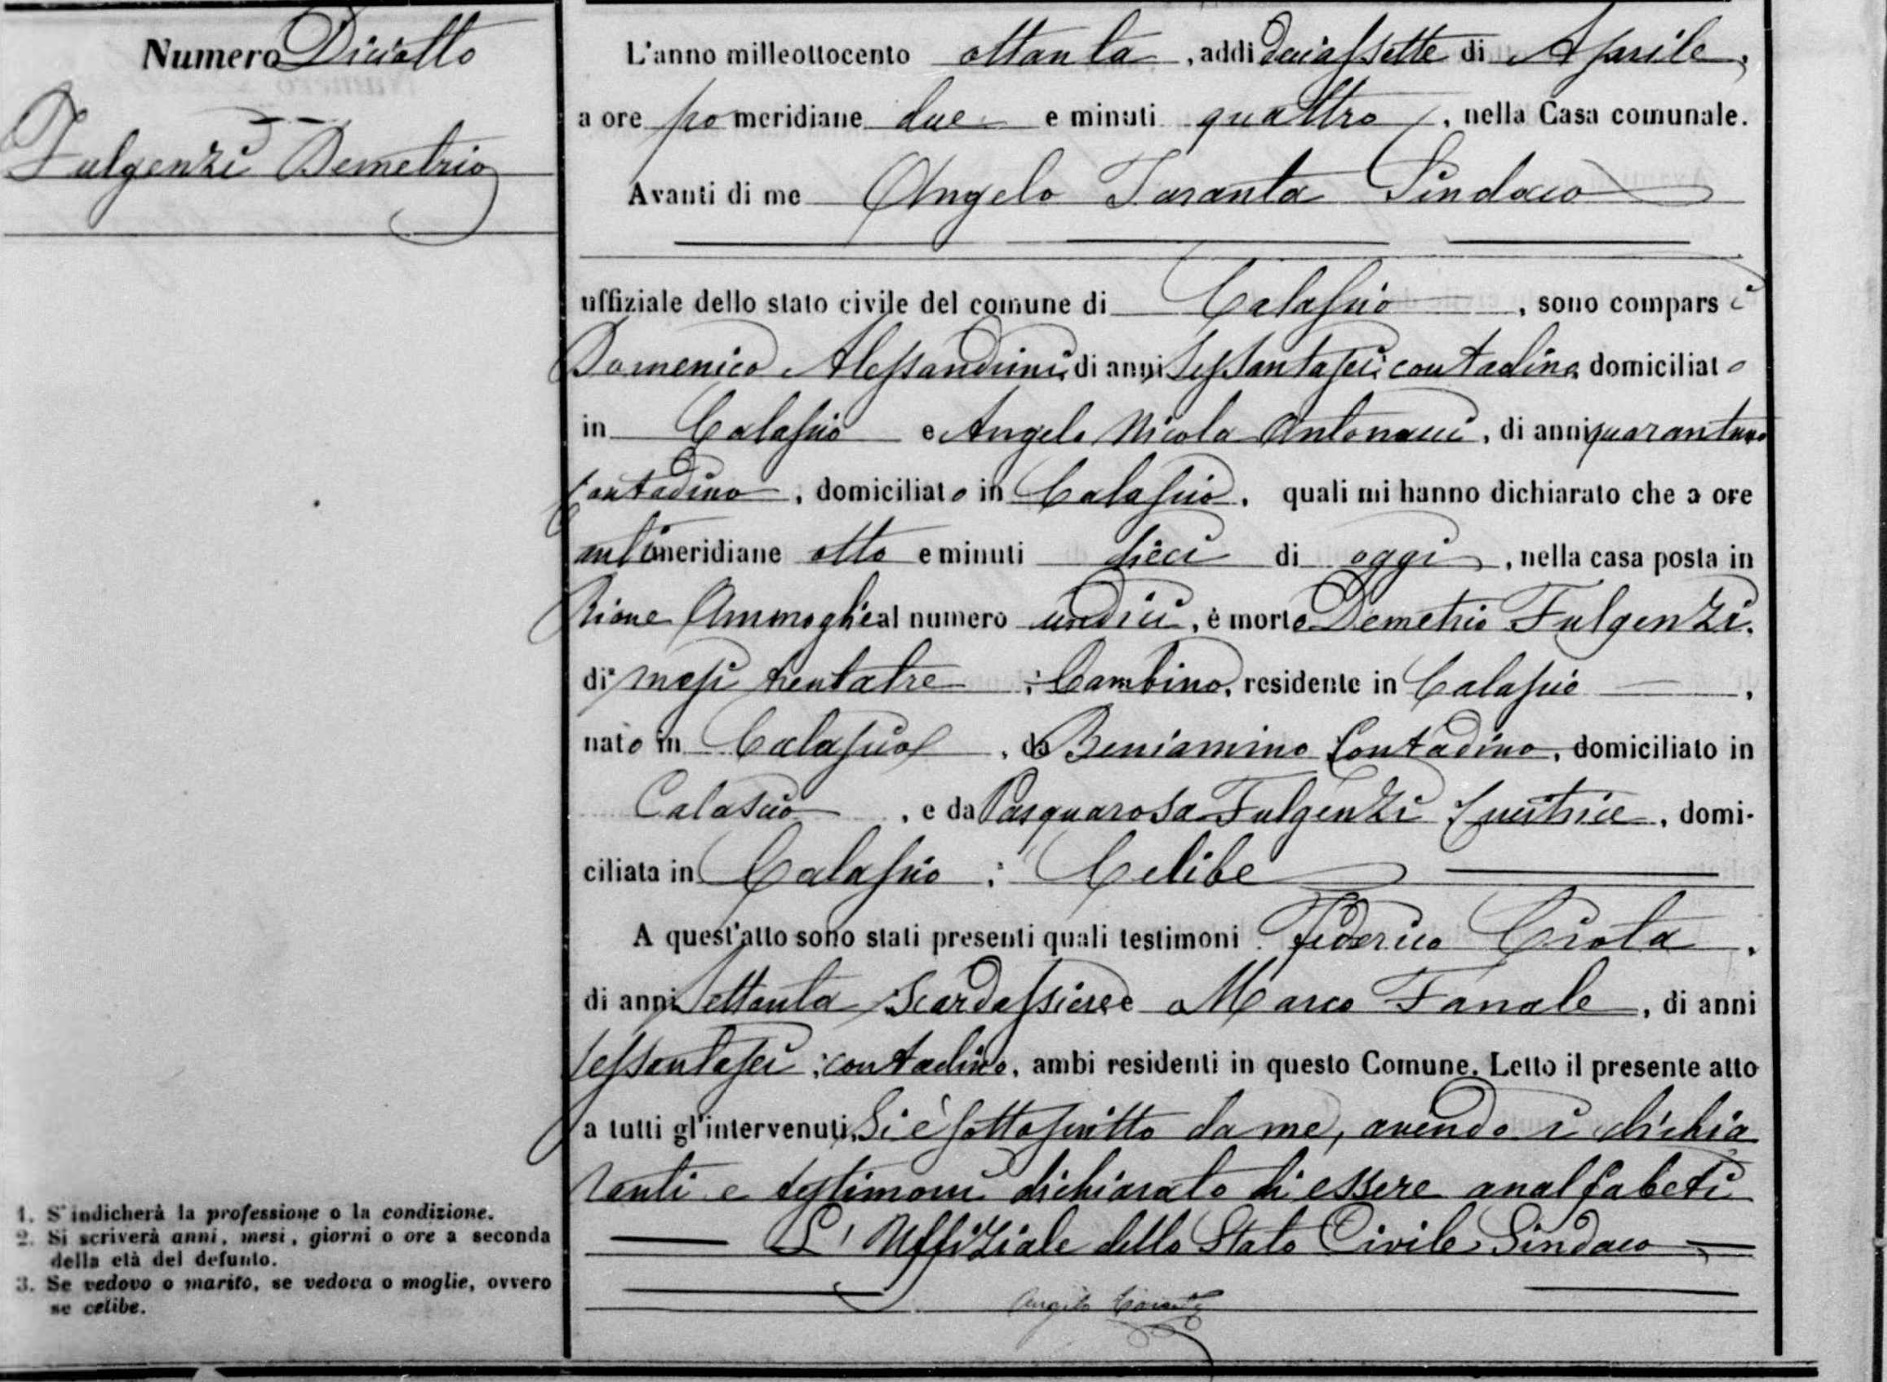 Numero Diciotto
Fulgenzi Demetrio
L'anno milleottocento ottanta, addì diciassette di Aprile,
a ore pomeridiane due e minuti quattro, nella Casa comunale.
Avanti di me Angelo Taranta Sindaco
uffiziale dello stato civile del comune di Calascio, sono comparsi
Domenico Alessandrini, di anni sessantasei, contadino domiciliato
in Calascio e Angelo Nicola Antonacci, di anni quarantuno
contadino, domiciliato in Calascio, quali mi hanno dichiarato che a ore
antimeridiane otto e minuti dieci di oggi, nella casa posta in
Rione Ammoghie al numero undici, è morto Demetrio Fulgenzi,
di mesi trentatre; bambino, residente in Calascio,
nato in Calascio, da Beniamino contadino, domiciliato in
Calascio, e da Pasquarosa Fulgenzi cucitrice, domi-
ciliata in Calascio; Celibe
A quest'atto sono stati presenti quali testimoni Federico Ciota,
di anni settanta scardassiere e Marco Fanale, di anni
sessantasei, contadino, ambi residenti in questo Comune. Letto il presente atto
a tutti gl'intervenuti, si è sottoscritto da me, avendo i dichia
ranti e testimoni dichiarato di essere analfabeti
L'Uffiziale dello Stato Civile, Sindaco
Angelo Taranta
1. S'indicherà la professione o la condizione.
2. Si scriverà anni, mesi, giorni o ore a seconda
della età del defunto.
3. Se vedovo o marito, se vedova o moglie, ovvero
se celibe.